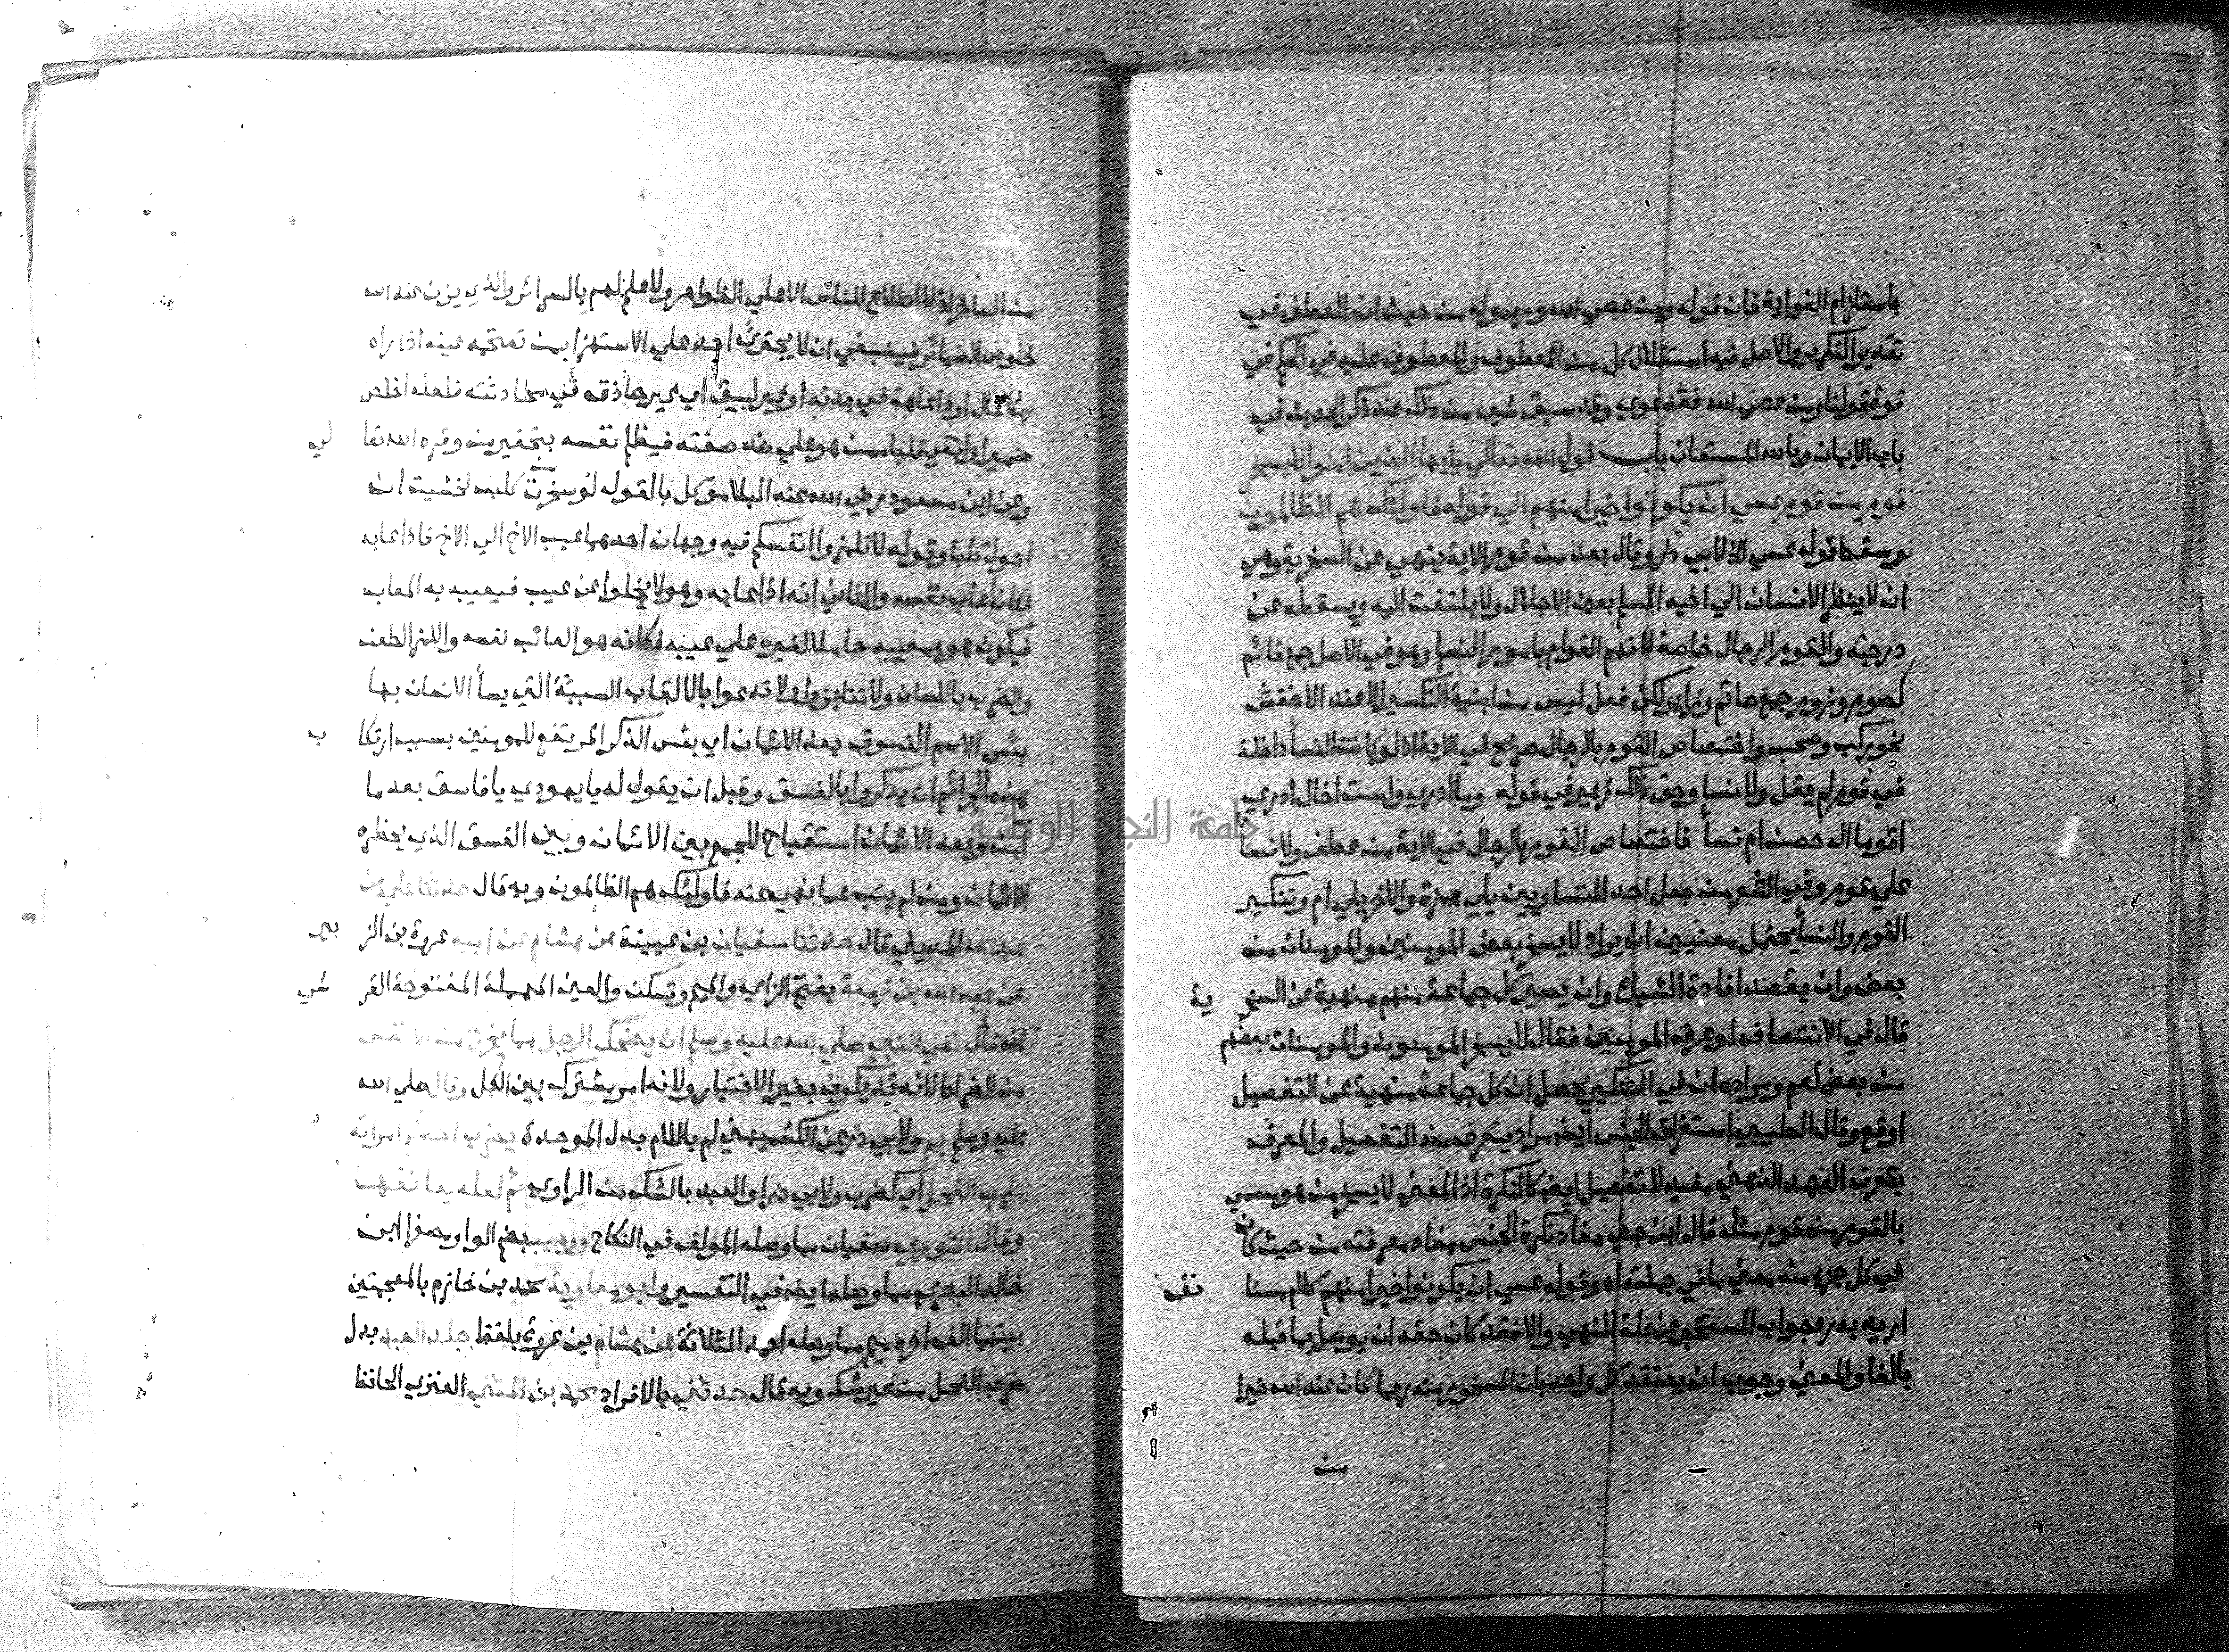 باستلزام الغواية فان قوله ومن عصي الله ورسوله من حيث ان العطف في
تقدير التكرير والاصل فيه استقلال كل من المعطوف والمعطوف عليه في الحكم في
قوة قولنا ومن عصي الله فقد غوي وقد سبق شي من ذلك عند ذكر الحديث في
باب الايمان وبالله المستعان باب قول الله تعالي يايها الذين امنوا لا يسخر
قوم من قوم عسي ان يكونوا خيرا منهم الي قوله فاوليك هم الظالمون
وسقط قوله عسي لابي ذر وقال بعد من قوم الاية ينهي عن السخرية وهي
ان لا ينظر الانسان الي اخيه المسلم بعين الاجلال ولا يلتفت اليه ويسقطه عن
درجته والقوم الرجال خاصة لانهم القوام بامور النسا وهو في الاصل جمع قائم
كصوم وزوم جمع صائم وزاير لكن فعل ليس من ابنية التكسير الا عند الاخفش
نحو ركب وصحب واختصاص القوم بالرجال صريح في الاية اذ لو كانت النسأ داخلة
في قوم لم يقل ولا نسا وحقق ذلك زهير في قوله وما ادري ولست اخال ادري
اقوم ال حصن ام نسأ فاختصاص القوم بالرجال في الاية من عطف ولا نسأ
علي قوم وفي الشعر من جعل احد المتساويين يلي همزة والاخر يلي ام وتنكير
القوم والنسأ يحتمل معنيين ان يراد لا يسخر بعض المومنين والمومنات من
بعض وان يقصد افادة الشياع وان يصير كل جماعة منهم منهية عن السخر ية
قال في الانتصاف لو عرف المومنين فقال لا يسخر المومنون والمومنات بعضهم
من بعض لعم ومراده ان في التنكير يحصل ان كل جماعة منهية عن التفصيل
اوقع وقال الطيبي استغراق الجنس ايضا مراد يتعرف منه التفصيل والمعرف
بتعرف العهد الذهني مفيد للتفصيل ايضا كالنكرة اذ المعني لا يسخر من هو مسمي
بالقوم من قوم مثله قال ابن جني مفاد نكرة الجنس مفاد معرفته من حيث كان
في كل جزء منه معني ما في جملته اه وقوله عسي ان يكونوا خيرا منهم كلام مستا نف
اريد به جواب المستخبر عن علة النهي والا فقد كان حقه ان يوصل بما قبله
بالفا والمعني وجوب ان يعتقد كل واحد بان المسخور منه ربما كان عند الله خيرا
من
من الساخر اذ لا اطلاع للناس الا علي الظواهر ولا علم لهم بالسرائر والذي يزن عند الله
خلوص الضمائر فينبغي ان لا يجترئ احد علي الاستهزا بمن تقتحمه عينه اذا راه
رث الحال او ذا عاهة في بدنه او غير لبيق اي غير حاذق في محادثته فلعله اخلص
ضميرا واتقي قلبا ممن هو علي ضد صفته فيظلم نفسه بتحقير من وقره الله تعا لي
وعن ابن مسعود رضي الله عنه البلا موكل بالقول لو سخرت من كلب لخشيت ان
احول كلبا وقوله لا تلمزوا انفسكم فيه وجهان احدهما عيب الاخ الي الاخ فاذا عابه
فكانه عاب نفسه والثاني انه اذا عابه وهو لا يخلوا عن عيب فيعيبه به المعاب
فيكون هو بعيبه حاملا لغيره علي عيبه فكانه هو العائب نفسه واللمز الطعن
والضرب باللسان ولا تنابزوا ولا تدعوا بالالقاب السيئة التي يسأ الانسان بها
بئس الاسم الفسوق بعد الايمان اي بئس الذكر المرتفع للمومنين بسبب ارتكا ب
هذه الجرائم ان يذكروا بالفسق وقيل ان يقول له يا يهودي يا فاسق بعد ما
امن وبعد الايمان استقباح للجمع بين الايمان وبين الفسق الذي يحظره
الايمان ومن لم يتب عما نهي عنه فاوليك هم الظالمون وبه قال حدثنا علي بن
عبد الله المديني قال حدثنا سفيان بن عيينة عن هشام عن ابيه عروة بن الز بير
عن عبد الله بن زمعة بفتح الزاي والميم وتسكن والعين المهملة المفتوحة القر شي
انه قال نهي النبي صلي الله عليه وسلم ان يضحك الرجل مما يخرج من الانفس
من الضراط لانه قد يكون بغير الاختيار ولانه امر مشترك بين الكل وقال صلي الله
عليه وسلم بم ولابي ذر عن الكشميهني لم باللام بدل الموحدة يضرب احدكم امراته
ضرب الفحل اي كضرب ولابي ذر او العبد بالشك من الراوي ثم لعله يعانقها
وقال الثوري سفيان مما وصله المولف في النكاح ووهيب بضم الواو مصغرا ابن
خالد البصري مما وصله ايضا في التفسير وابو معاوية محمد بن خازم بالمعجمتين
بينهما الف اخره ميم مما وصله احمد الثلاثة عن هشام بن عروة بلفظ جلد العبد بدل
ضرب الفحل من غير شك وبه قال حدثني بالافراد محمد بن المثني العنزي الحافظ
جامعة النجاح الوطنية